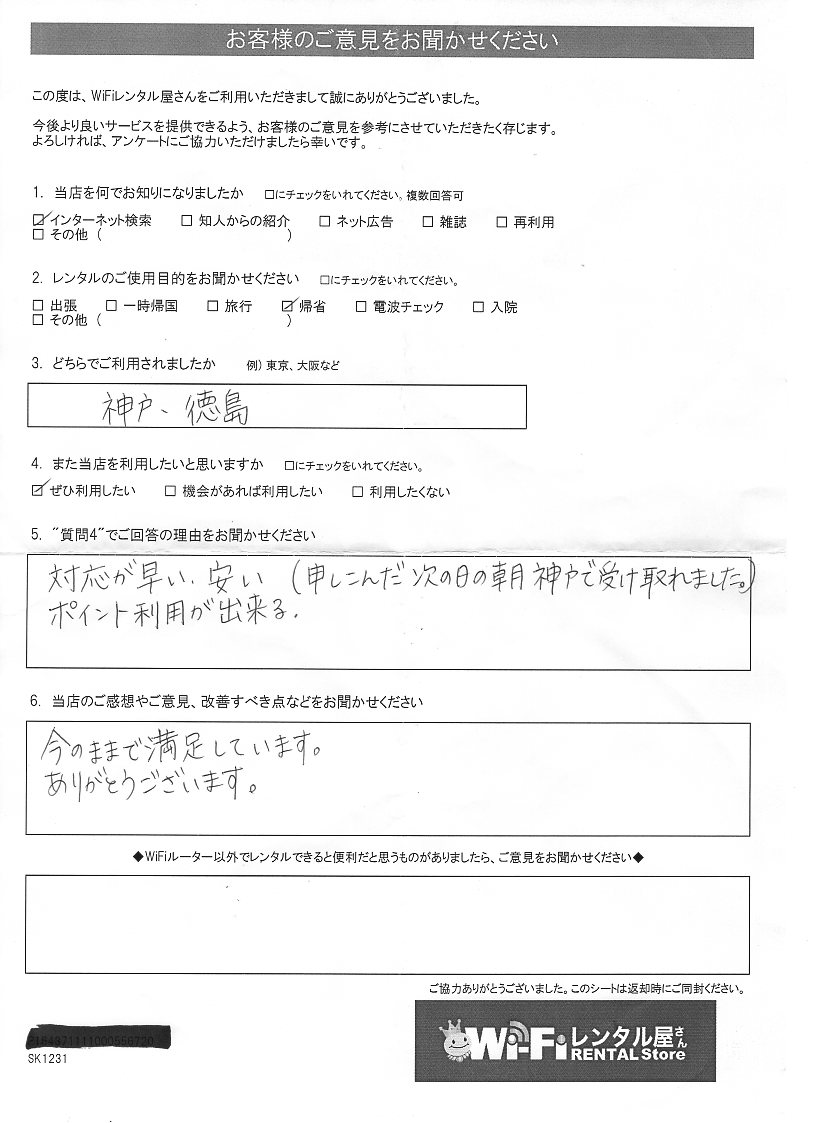 お客様のご意見をお聞かせください
この度は、WiFiレンタル屋さんをご利用いただきまして誠にありがとうございました。
今後より良いサービスを提供できるよう、お客様のご意見を参考にさせていただきたく存じます。
よろしければ、アンケートにご協力いただけましたら幸いです。
1. 当店を何でお知りになりましたか □にチェックをいれてください。複数回答可
☑インターネット検索 □ 知人からの紹介 □ ネット広告 □ 雑誌 □ 再利用
□ その他 ( )
2. レンタルのご使用目的をお聞かせください □にチェックをいれてください。
□ 出張 □ 一時帰国 □ 旅行 ☑帰省 □ 電波チェック □ 入院
□ その他 ( )
3. どちらでご利用されましたか 例) 東京、大阪など
神戸、徳島
4. また当店を利用したいと思いますか □にチェックをいれてください。
☑ぜひ利用したい □ 機会があれば利用したい □ 利用したくない
5. “質問4”でご回答の理由をお聞かせください
対応が早い、安い (申しこんだ次の日の朝神戸で受け取れました。)
ポイント利用が出来る.
6. 当店のご感想やご意見、改善すべき点などをお聞かせください
今のままで満足しています。
ありがとうございます。
◆WiFiルーター以外でレンタルできると便利だと思うものがありましたら、ご意見をお聞かせください◆
ご協力ありがとうございました。このシートは返却時にご同封ください。
Wi-Fiレンタル屋さん
RENTAL Store
SK1231